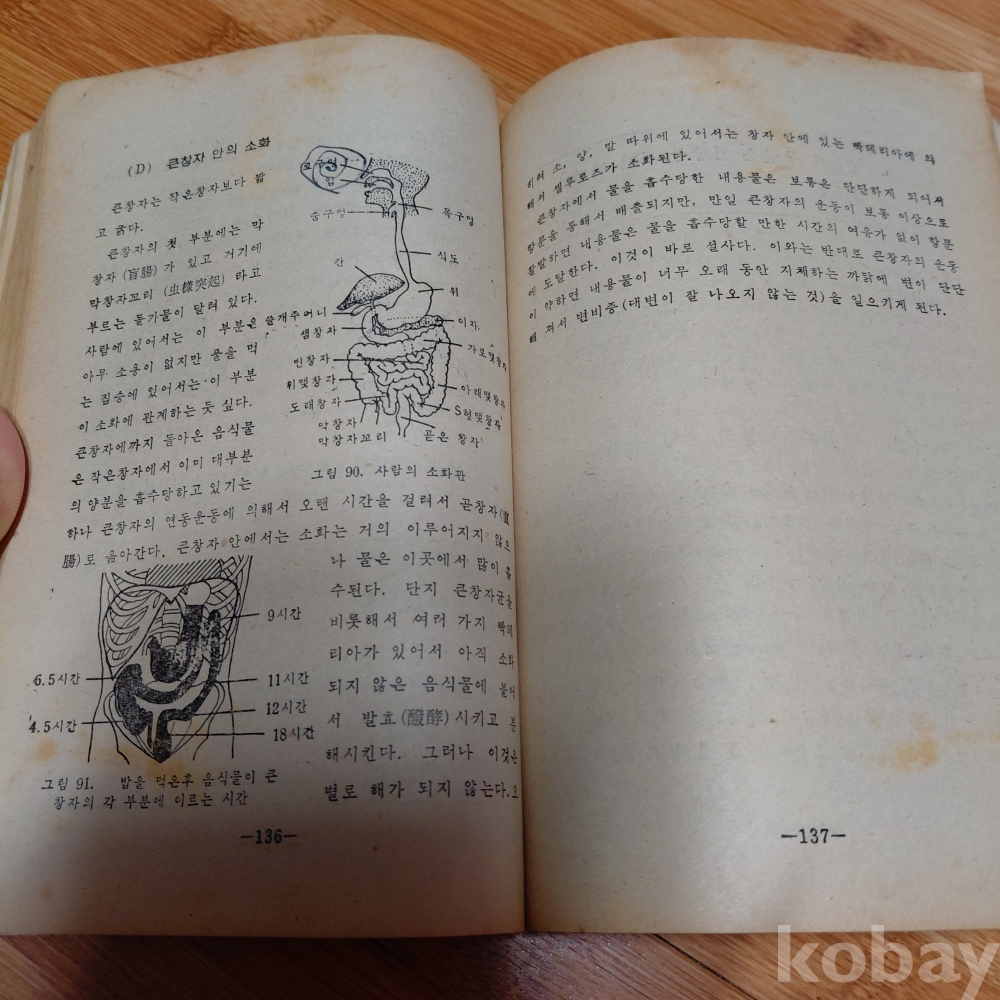 (D) 큰창자 안의 소화
큰창자는 작은창자보다 짧
고 굵다.
큰창자의 첫 부분에는 막
창자(盲腸)가 있고 거기에
막창자꼬리(虫樣突起)라고
부르는 돌기물이 달려 있다.
사람에 있어서는 이 부분은
아무 소용이 없지만 풀을 먹
는 짐승에 있어서는 이 부분
이 소화에 관계하는 듯 싶다.
큰창자에까지 돌아온 음식물
은 작은창자에서 이미 대부분
의 양분을 흡수당하고 있기는
하나 큰창자의 연동운동에 의해서 오랜 시간을 걸려서 곧창자(直
腸)로 옮아간다. 큰창자 안에서는 소화는 거의 이루어지지 않으
나 물은 이곳에서 많이 흡
수된다. 단지 큰창자균을
비롯해서 여러 가지 빡테
리아가 있어서 아직 소화
되지 않은 음식물에 붙어
서 발효(醱酵)시키고 분
해시킨다. 그러나 이것은
별로 해가 되지 않는다. 오
코구멍
입
숨구멍
목구멍
식도
간
위
쓸개주머니
이자
샘창자
가로맺창자
빈창자
위맺창자
아래맺창자
도래창자
S형맺창자
막창자
막창자꼬리
곧은 창자
그림 90. 사람의 소화관
9시간
6.5시간
11시간
12시간
4.5시간
18시간
그림 91. 밥을 먹은후 음식물이 큰
창자의 각 부분에 이르는 시간
—136—
히려 소, 양, 말 따위에 있어서는 창자 안에 있는 빡테리아에 의
해서 셀루로즈가 소화된다.
큰창자에서 물을 흡수당한 내용물은 보통은 단단하게 되어서
항문을 통해서 배출되지만, 만일 큰창자의 운동이 보통 이상으로
활발하면 내용물은 물을 흡수당할 만한 시간의 여유가 없이 항문
에 도달한다. 이것이 바로 설사다. 이와는 반대로 큰창자의 운동
이 약하면 내용물이 너무 오래 동안 지체하는 까닭에 변이 단단
해 져서 변비증(대변이 잘 나오지 않는 것)을 일으키게 된다.
—137—
kobay